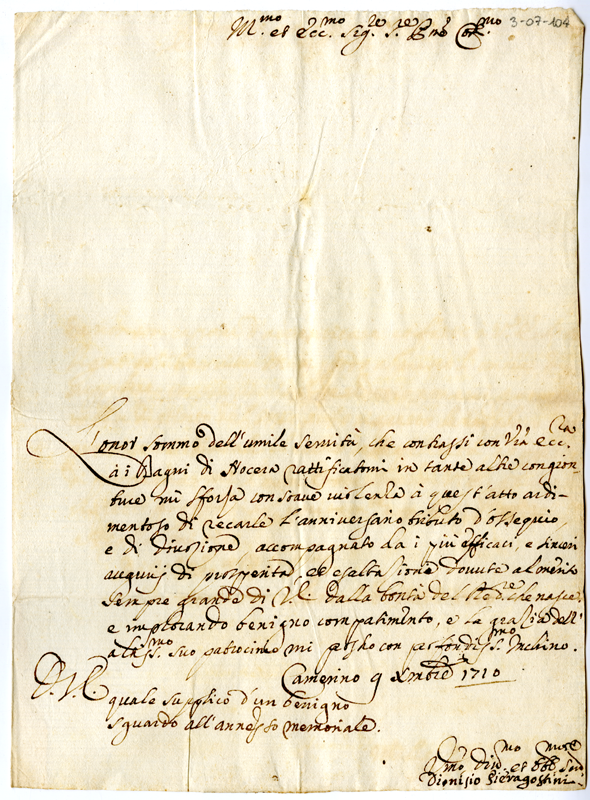 Ill.mo et Ecc.mo Sig.re S.re Pne Col.mo
3-07-104
L'onor sommo dell'umile servitù, che contrassi con V'ra Ecc.za
à i Bagni di Nocera rattificatomi in tante altre congion-
ture mi sforza con soave violenza à quest'atto ardi-
mentoso di recarle l'anniversario tributo d'ossequio,
e di divozione, accompagnato da i più efficaci, e sinceri
augurij di prosperità, et esaltazione dovute al merito
sempre grande di V.E. dalla bontà del Red.re che nasce,
e implorando benigno compatimento, e la grazia dell'
altiss.mo suo patrocinio mi porto con profondiss.mo Inchino.
D. V. E. Camerino 9 Xmbre 1710
quale supplico d'un benigno
sguardo all'annesso memoriale.
Vmo Div.mo et obb.mo Ser.re
Dionisio Pieragostini